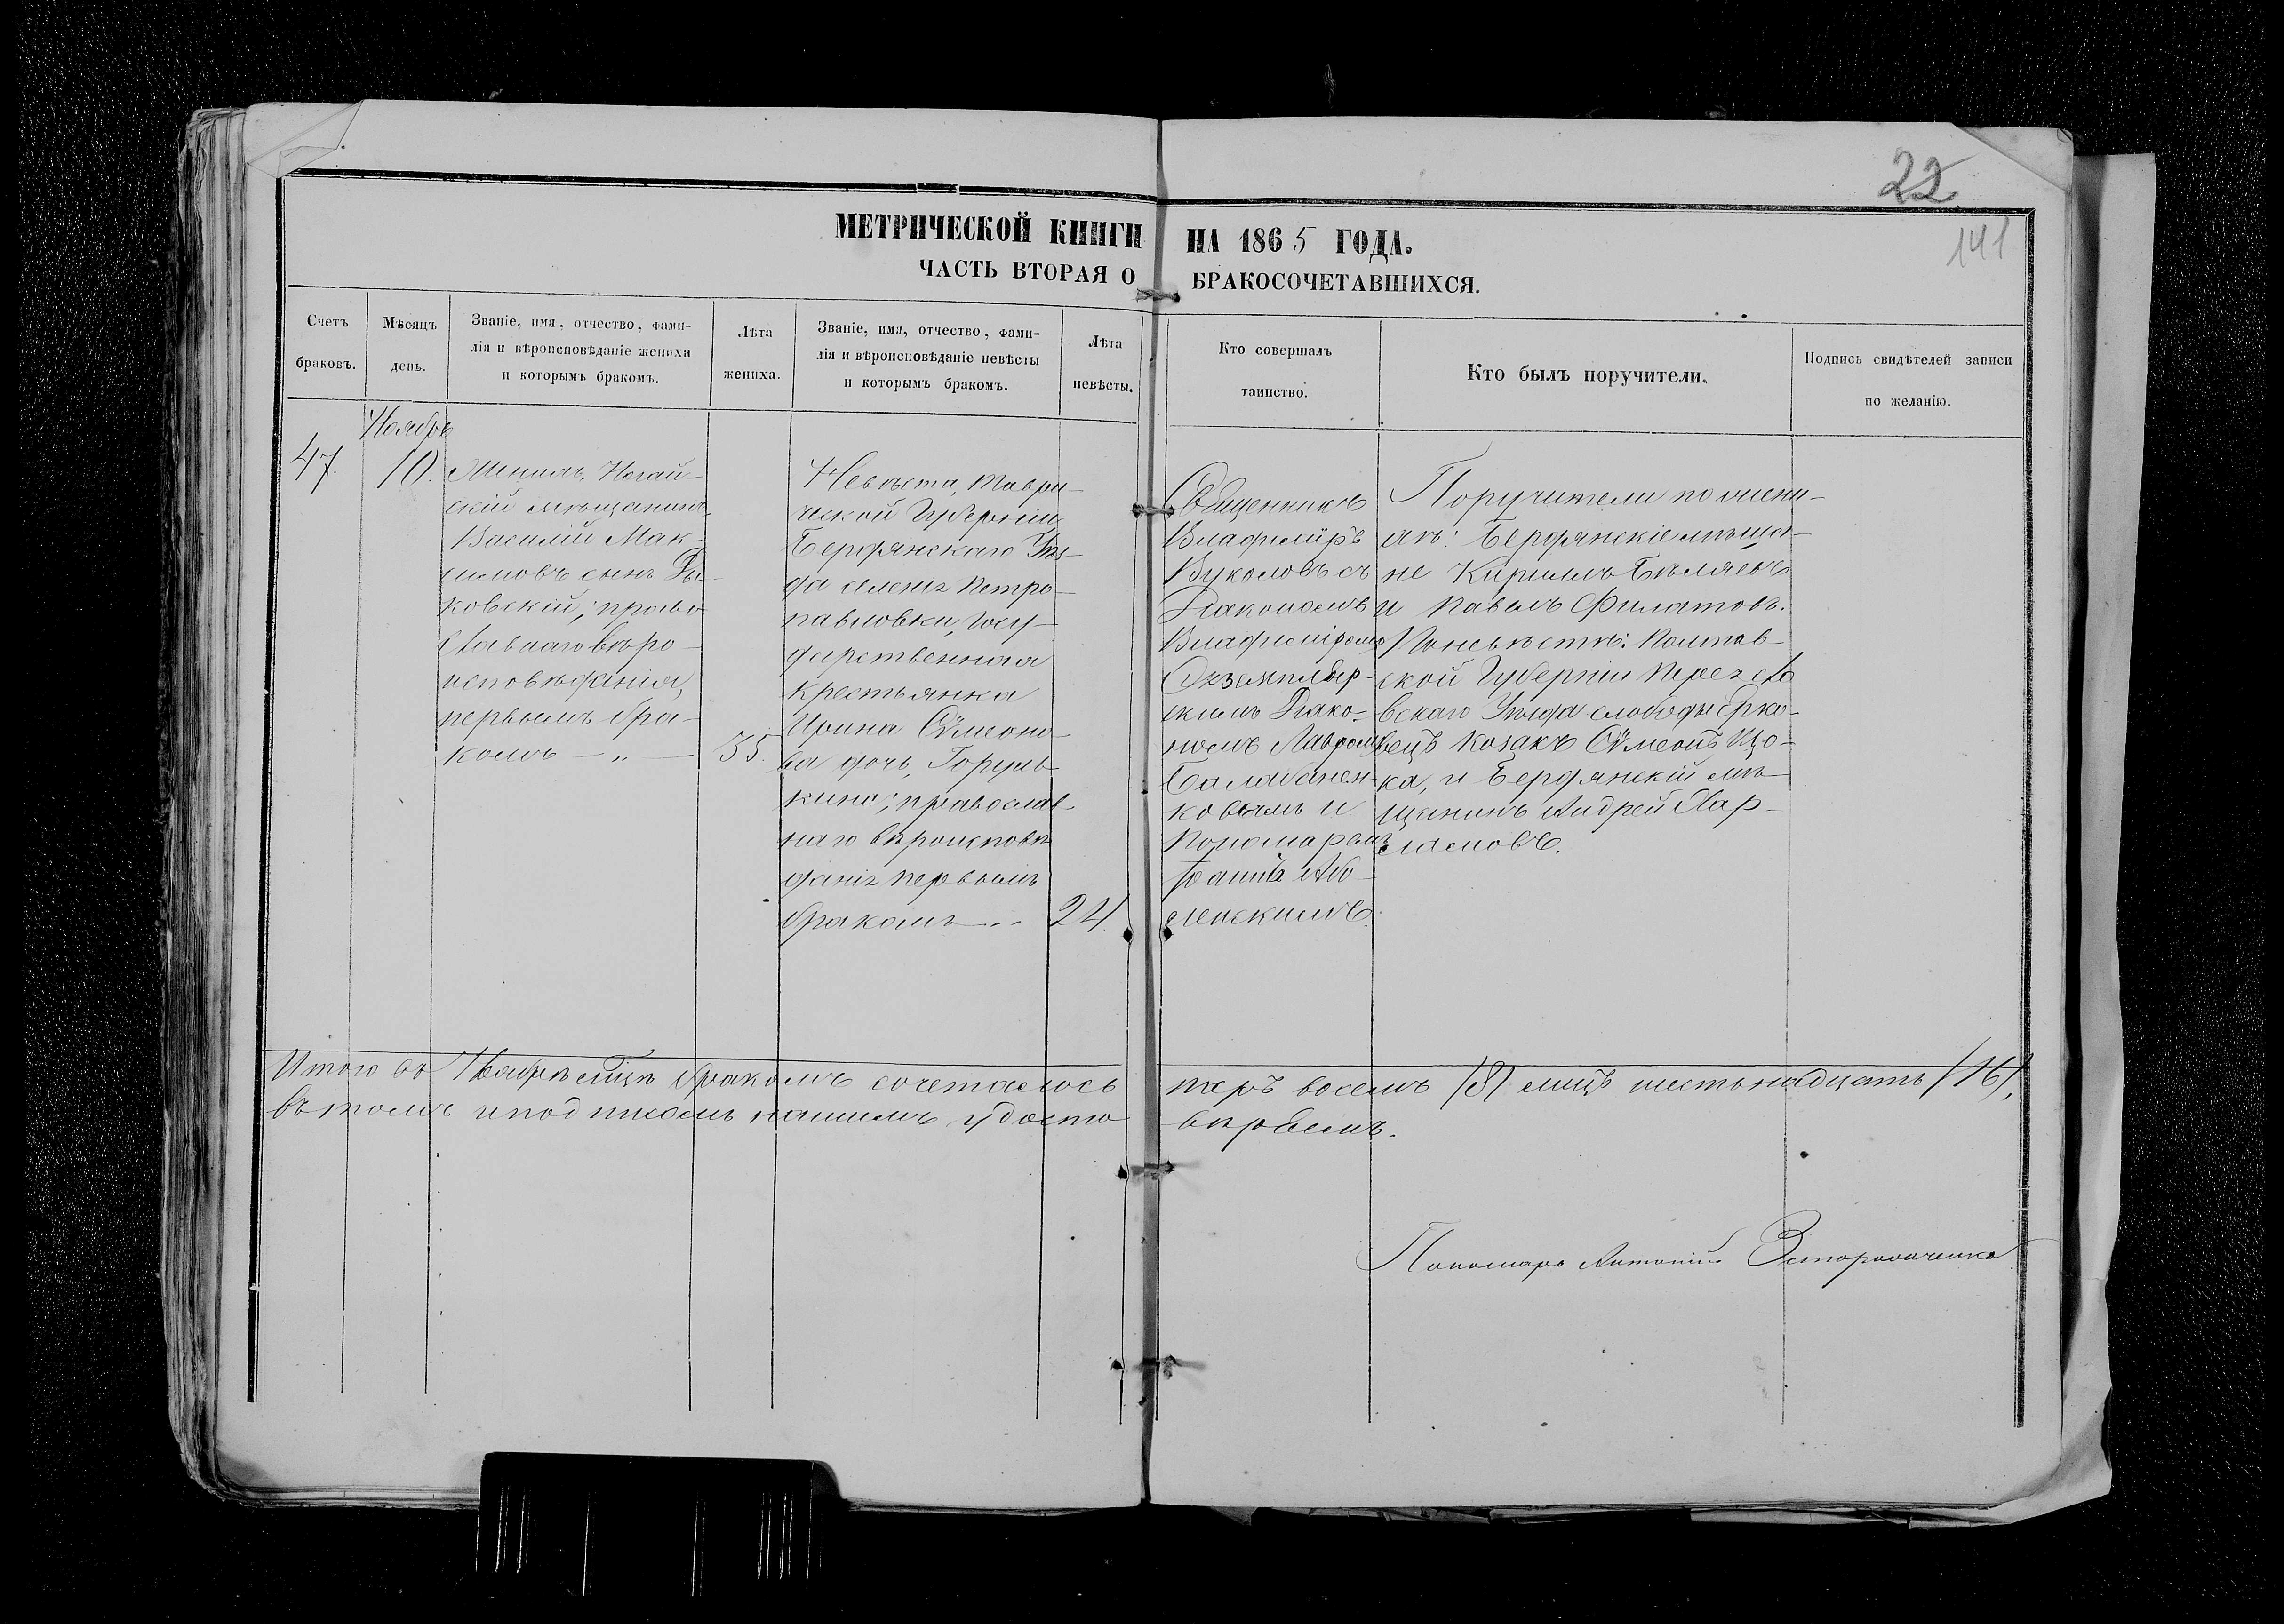 22
141
МЕТРИЧЕСКОЙ КНИГИ НА 1865 ГОДА.
ЧАСТЬ ВТОРАЯ О БРАКОСОЧЕТАВШИХСЯ.
Счетъ
браковъ.
Мѣсяцъ
день.
Званіе, имя, отчество, фами-
лія и вѣроисповѣданіе жениха
и которымъ бракомъ.
Лѣта
жениха.
Званіе, имя, отчество, фами-
лія и вѣроисповѣданіе невѣсты
и которымъ бракомъ.
Лѣта
невѣсты.
Кто совершалъ
таинство.
Кто былъ поручители.
Подпись свидѣтелей записи
по желанію.
47.
Ноябрь
10.
Женихъ, Ногай-
скій мѣщанинъ,
Василій Мак-
симовъ сынъ
ковскій; право
славнаго вѣро-
исповѣданія,
первымъ бра-
комъ — „ —
35.
Невѣста, Таври-
ческой Губерніи
Бердянскаго Уѣз-
да селенія Петро-
павловки, Госу-
дарственная
крестьянка
Ирина Сѵмеоно-
ва дочь, Горуль-
кина; православ-
наго вѣроисповѣ
данія первымъ
бракомъ
24.
Священникъ
Владиміръ
Вуколовъ съ
Діакономъ
Владиміромъ
Экземпляр-
скимъ Діако-
номъ Лавромъ
Балабанен-
ковымъ и
Пономаремъ
Іоанн
Поручители по жени-
хѣ: Бердянскіе мѣща-
не Кириллъ Бѣляевъ
и Павелъ Филатовъ.
По невѣстѣ: Полтав-
ской Губерніи Переясла
вскаго Уѣзда слободы Ерко-
вецъ козакъ Сѵмеонъ Цо-
ка, и Бердянскій мѣ
щанинъ Андрей Хар-
ламповъ.
Итого въ Ноябрѣ мцѣ бракомъ сочеталось паръ восемь /8/ лицъ шестьнадцать /16/,
въ томъ и подписомъ нашимъ удосто вѣряемъ.
Пономарь Антоній